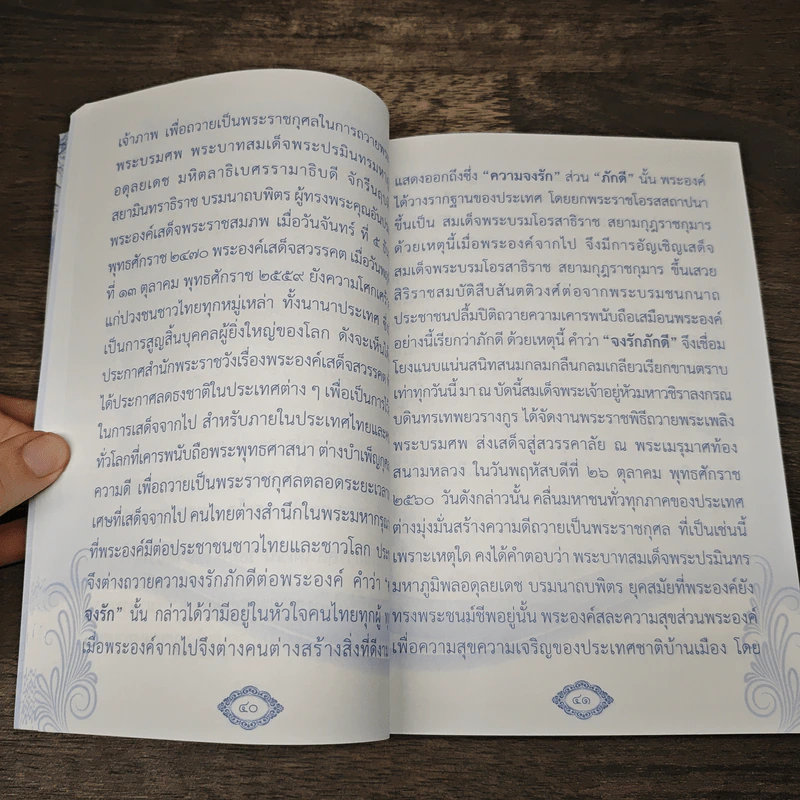 เจ้าภาพ เพื่อถวายเป็นพระราชกุศลในการถวาย
พระบรมศพ พระบาทสมเด็จพระปรมินทรมหา
อดุลยเดช มหิตลาธิเบศรรามาธิบดี จักรีนฤบ
สยามินทราธิราช บรมนาถบพิตร ผู้ทรงพระคุณอัน
พระองค์เสด็จพระราชสมภพ เมื่อวันจันทร์ ที่ ๕
พุทธศักราช ๒๔๗๐ พระองค์เสด็จสวรรคต เมื่อวัน
ที่ ๑๓ ตุลาคม พุทธศักราช ๒๕๕๙ ยังความโศกเศร้า
แก่ปวงชนชาวไทยทุกหมู่เหล่า ทั้งนานาประเทศ
เป็นการสูญสิ้นบุคคลผู้ยิ่งใหญ่ของโลก ดังจะเห็น
ประกาศสำนักพระราชวังเรื่องพระองค์เสด็จสวรรคต
ได้ประกาศลดธงชาติในประเทศต่าง ๆ เพื่อเป็นการ
ในการเสด็จจากไป สำหรับภายในประเทศไทยและ
ทั่วโลกที่เคารพนับถือพระพุทธศาสนา ต่างบำเพ็ญกุศล
ความดี เพื่อถวายเป็นพระราชกุศลตลอดระยะเวลา
เศษที่เสด็จจากไป คนไทยต่างสำนึกในพระมหากรุณา
ที่พระองค์มีต่อประชาชนชาวไทยและชาวโลก ประ
จึงต่างถวายความจงรักภักดีต่อพระองค์ คำว่า
จงรัก” นั้น กล่าวได้ว่ามีอยู่ในหัวใจคนไทยทุกผู้
เมื่อพระองค์จากไปจึงต่างคนต่างสร้างสิ่งที่ดีงาม
๔๐
แสดงออกถึงซึ่ง “ความจงรัก” ส่วน “ภักดี” นั้น พระองค์
ได้วางรากฐานของประเทศ โดยยกพระราชโอรสสถาปนา
ขึ้นเป็น สมเด็จพระบรมโอรสาธิราช สยามกุฎราชกุมาร
ด้วยเหตุนี้เมื่อพระองค์จากไป จึงมีการอัญเชิญเสด็จ
สมเด็จพระบรมโอรสาธิราช สยามกุฎราชกุมาร ขึ้นเสวย
สิริราชสมบัติสืบสันตติวงศ์ต่อจากพระบรมชนกนาถ
ประชาชนปลื้มปิติถวายความเคารพนับถือเสมือนพระองค์
อย่างนี้เรียกว่าภักดี ด้วยเหตุนี้ คำว่า “จงรักภักดี” จึงเชื่อม
โยงแนบแน่นสนิทสนมกลมกลืนกลมเกลียวเรียกขานตราบ
เท่าทุกวันนี้ มา ณ บัดนี้สมเด็จพระเจ้าอยู่หัวมหาวชิราลงกรณ
บดินทรเทพยวรางกูร ได้จัดงานพระราชพิธีถวายพระเพลิง
พระบรมศพ ส่งเสด็จสู่สวรรคาลัย ณ พระเมรุมาศท้อง
สนามหลวง ในวันพฤหัสบดีที่ ๒๖ ตุลาคม พุทธศักราช
๒๕๖๐ วันดังกล่าวนั้น คลื่นมหาชนทั่วทุกภาคของประเทศ
ต่างมุ่งมั่นสร้างความดีถวายเป็นพระราชกุศล ที่เป็นเช่นนี้
เพราะเหตุใด คงได้คำตอบว่า พระบาทสมเด็จพระปรมินทร
มหาภูมิพลอดุลยเดช บรมนาถบพิตร ยุคสมัยที่พระองค์ยัง
ทรงพระชนม์ชีพอยู่นั้น พระองค์สละความสุขส่วนพระองค์
เพื่อความสุขความเจริญของประเทศชาติบ้านเมือง โดย
๔๑